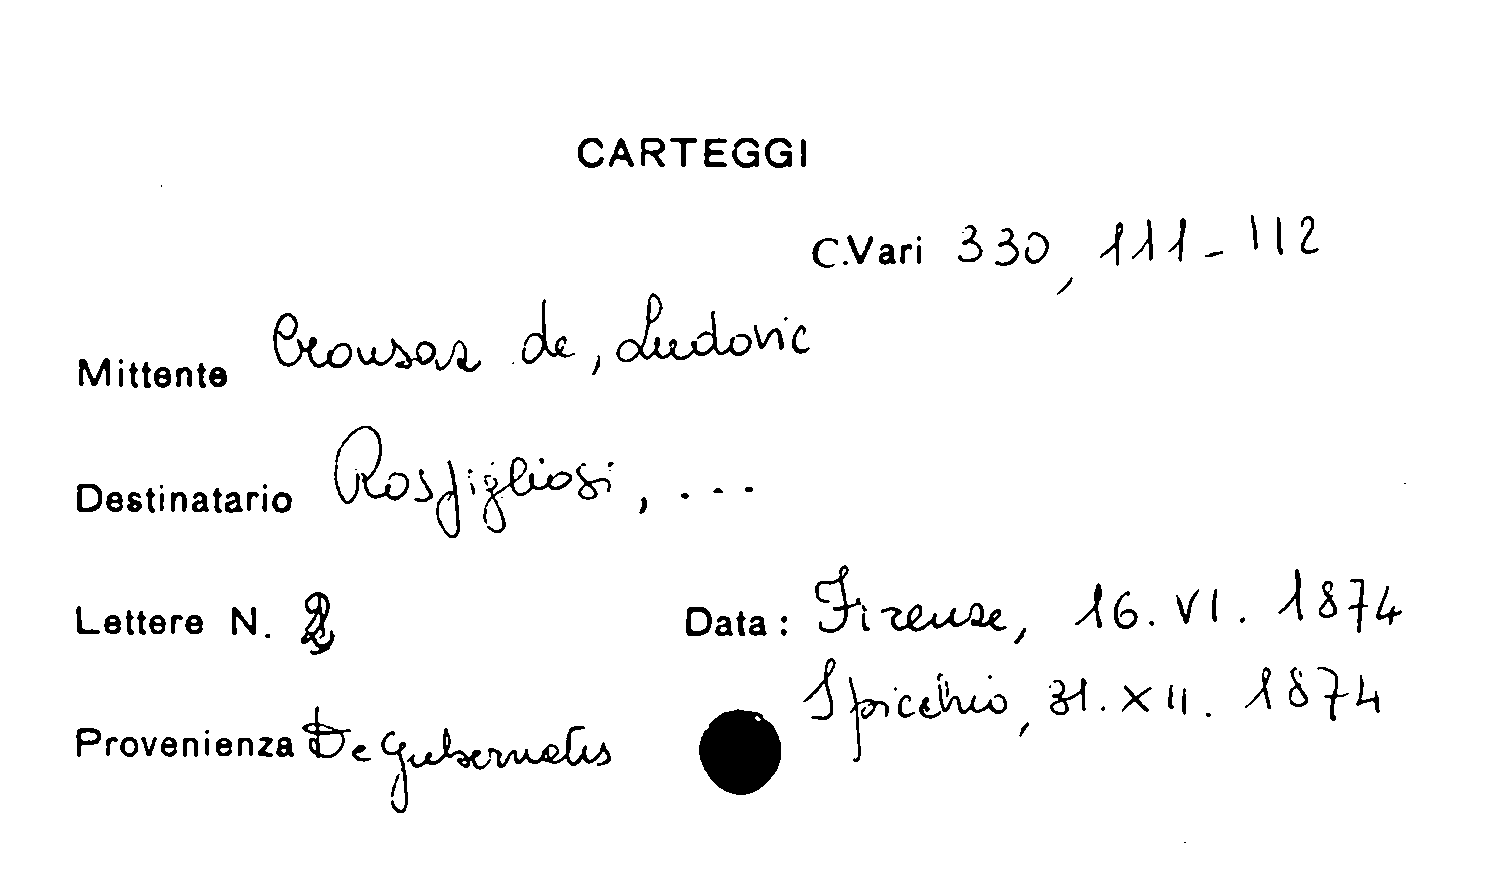 CARTEGGI
C.Vari 330, 111-112
Mittente Crousaz de, Ludovic
Destinatario Rospigliosi, ...
Lettere N. 2 Data: Firenze, 16.VI.1874
Spicchio, 31.XII.1874
Provenienza De Gubernatis